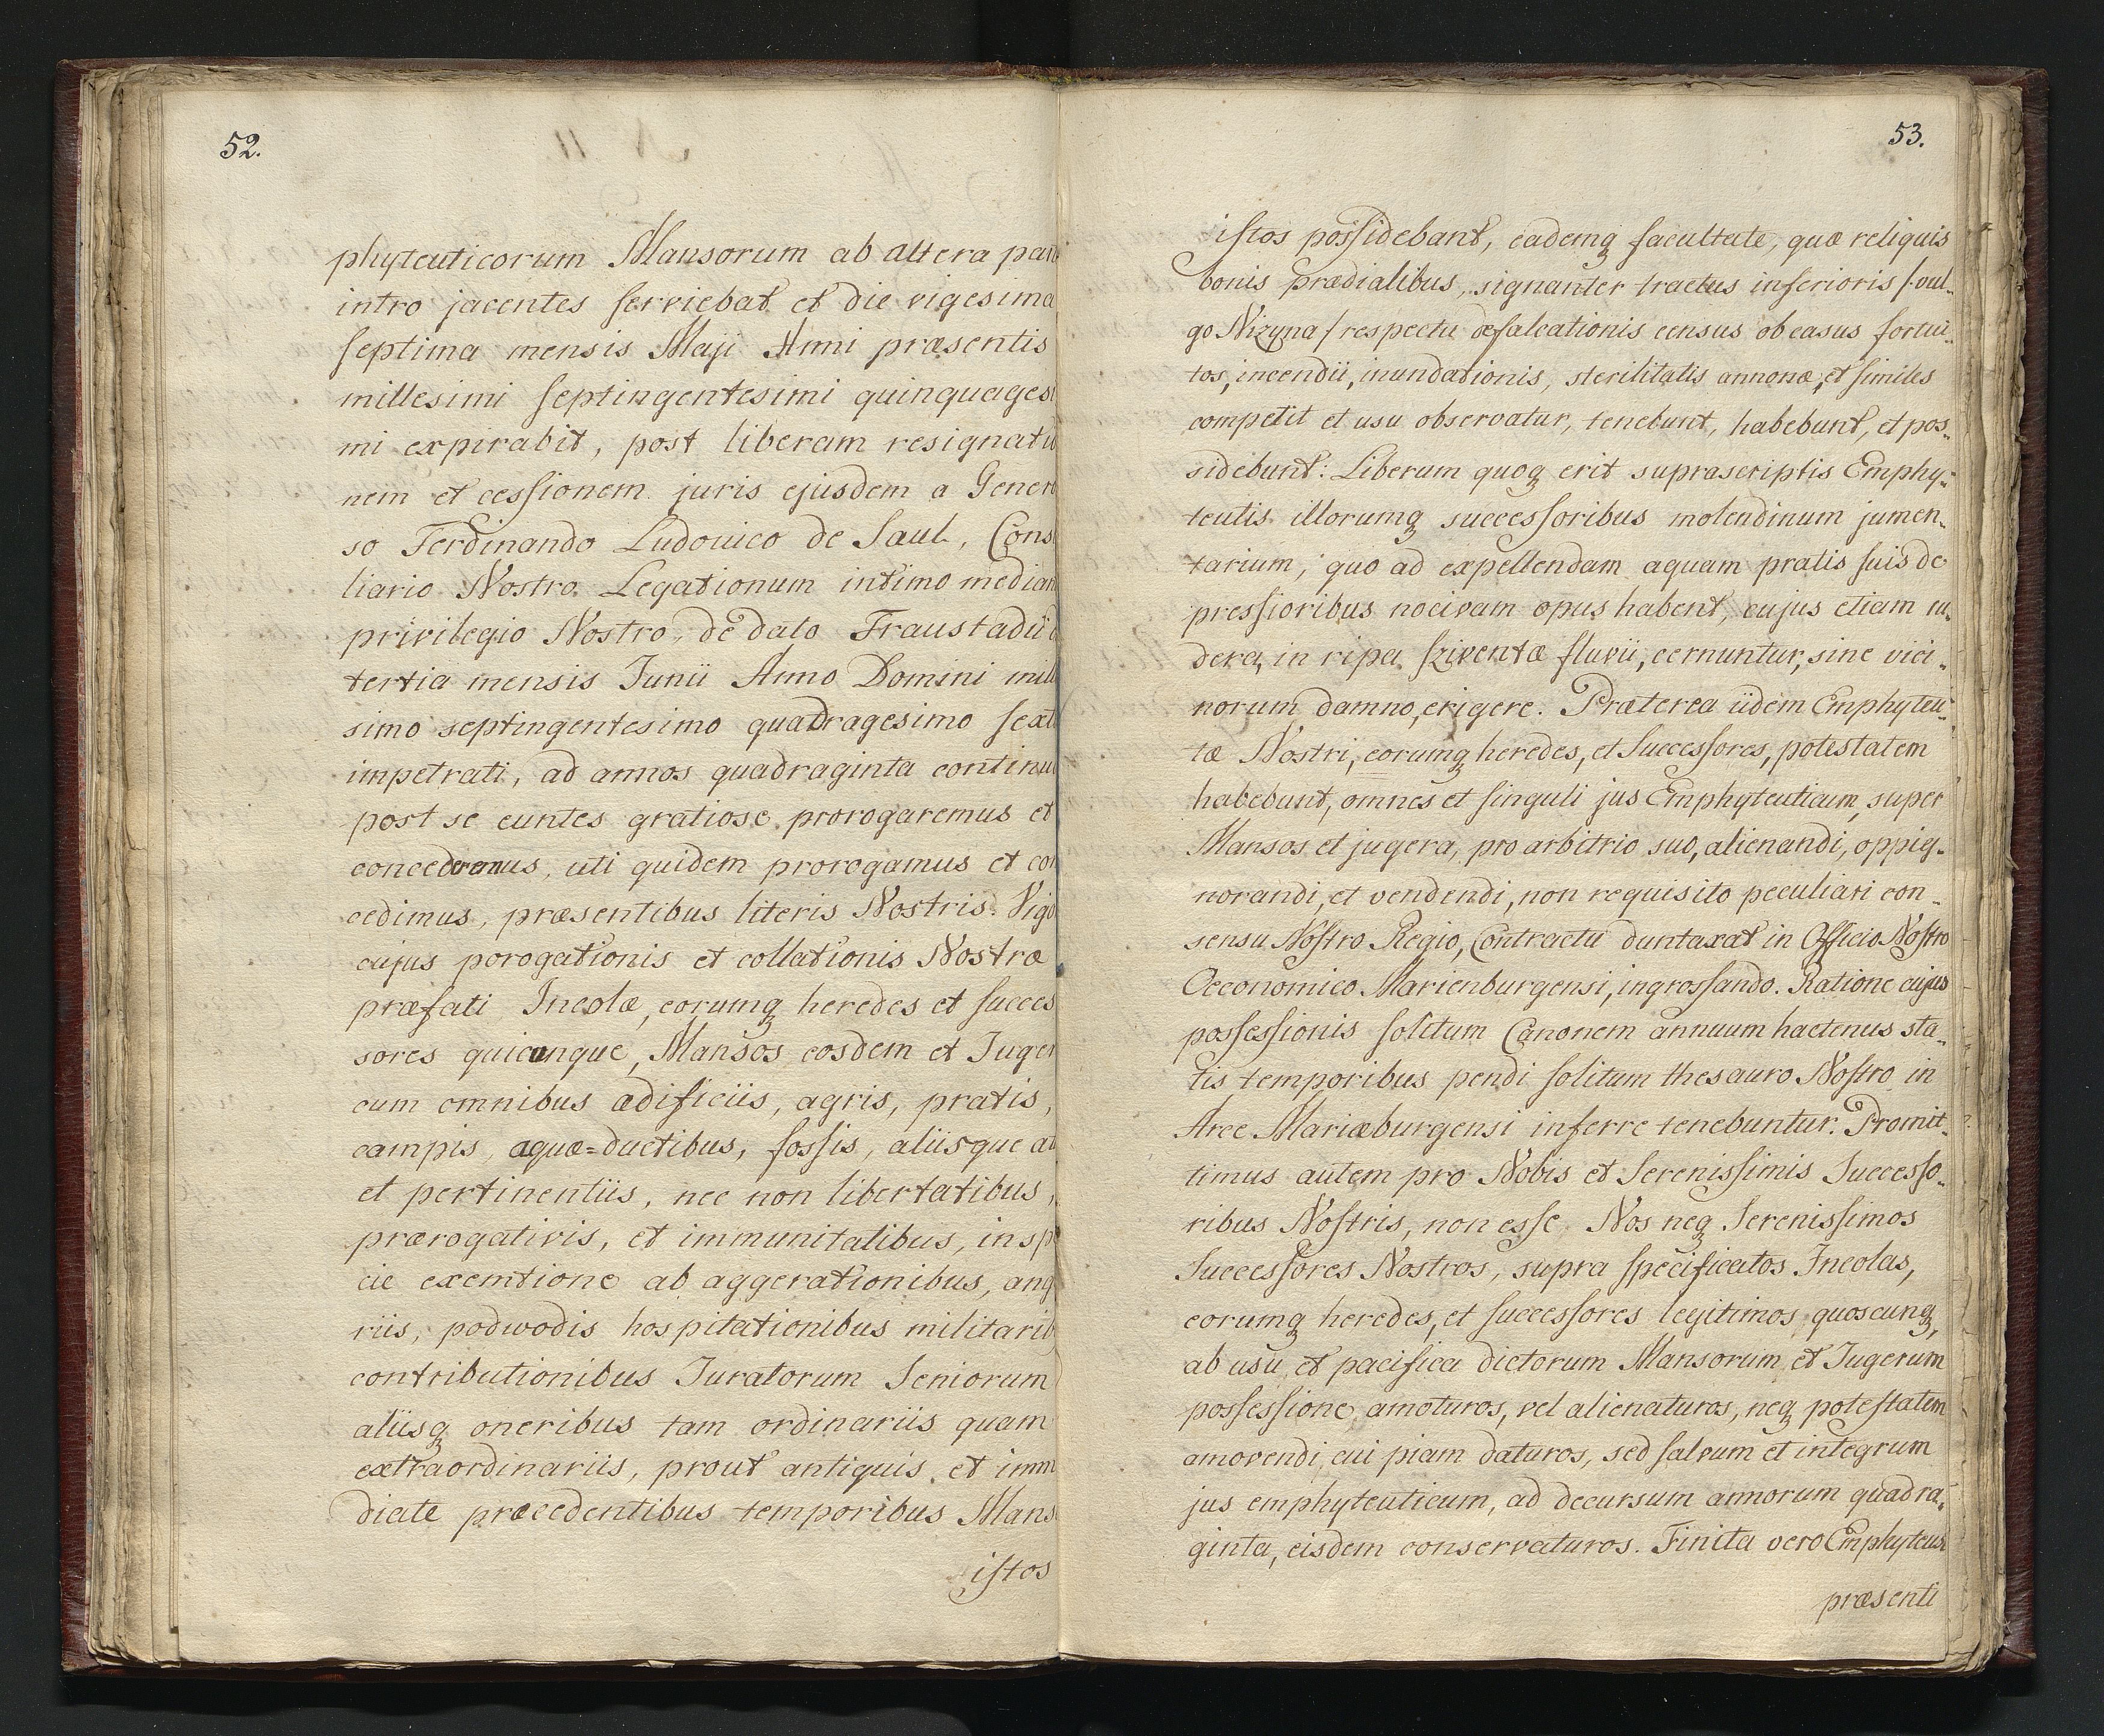 52.
phyteuticorum Mansorum ab altera par
intro jacentes serviebat et die vigesima
septima mensis Maji Anni præsentis
millesimi septingentesimi quinquages
mi expirabit, post liberam resignatio
nem et cessionem juris ejusdem a Gener
so Ferdinando Ludovico de Saul, Cons
liario Nostro Legationum intimo median
privilegio Nostro, de dato Fraustadii d
tertia mensis Junii Anno Domini mill
simo septingentesimo quadragesimo sext
impetrati, ad annos quadraginta continu
post se euntes gratiose prorogaremus et
concederemus, uti quidem prorogamus et con
cedimus, præsentibus literis Nostris. Vigo
cujus porogationis et collationis Nostræ
præfati Incolæ, eorumq heredes et succes
sores quicunque, Mansos eosdem et Juger
cum omnibus ædificiis, agris, pratis,
campis, aquæ=ductibus, fossis, aliisque at
et pertinentiis, nec non libertatibus,
prærogativis, et immunitatibus, in sp
cie exemtione ab aggerationibus, ang
riis, podwodis hospitationibus militarib
contributionibus Juratorum Seniorum
aliisq oneribus tam ordinariis quam
extraordinariis, prout antiquis et imm
diate præcedentibus temporibus Mans
istos
53.
istos possidebant, eademq facultate, quæ reliquis
bonis prædialibus, signanter tractus inferioris /: vul-
go Nizyna / respectu defalcationis census ob casus fortui-
tos, incendii, inundationis, sterilitatis annonæ, et similes
competit et usu observatur, tenebunt, habebunt, et pos-
sidebunt: Liberum quoq erit suprascriptis Emphy-
teutis illorumq successoribus molendinum jumen-
tarium, quo ad expellendam aquam pratis suis de
pressioribus nocivam opus habent, cujus etiam ru-
dera, in ripa Szwentæ fluvii, cernuntur, sine vici-
norum damno, erigere. Præterea iidem Emphyteu-
tæ Nostri, eorumq heredes, et Successores, potestatem
habebunt, omnes et singuli jus Emphyteuticum, super
Mansos et jugera, pro arbitrio suo, alienandi, oppig-
norandi, et vendendi, non requisito peculiari con-
sensu Nostro Regio, Contractu duntaxat in Officio Nostro
Oeconomico Marienburgensi, ingrossando. Ratione cujus
possessionis solitum Canonem annuum hactenus sta-
tis temporibus pendi solitum thesauro Nostro in
Arce Mariæburgensi inferre tenebuntur. Promit-
timus autem pro Nobis et Serenissimis Successo-
ribus Nostris, non esse Nos neq Serenissimos
Successores Nostros, supra specificatos Incolas,
eorumq heredes, et successores legitimos quoscunq,
ab usu, et pacifica dictorum Mansorum, et Jugerum
possessione, amoturos, vel alienaturos, neq potestatem
amovendi, cui piam daturos, sed salvum et integrum
jus emphyteuticum, ad decursum annorum quadra-
ginta, eisdem conservaturos. Finita vero Emphyteusi
præsenti